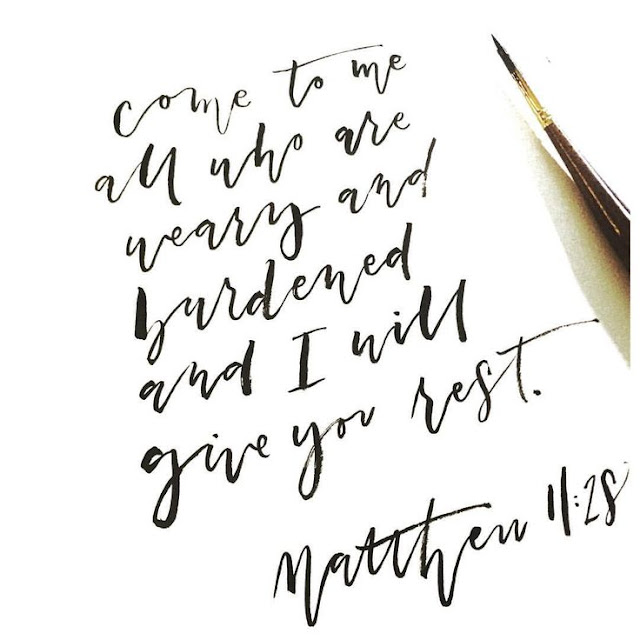 come to me
all who are
weary and
burdened
and I will
give you rest.
Matthew 11:28